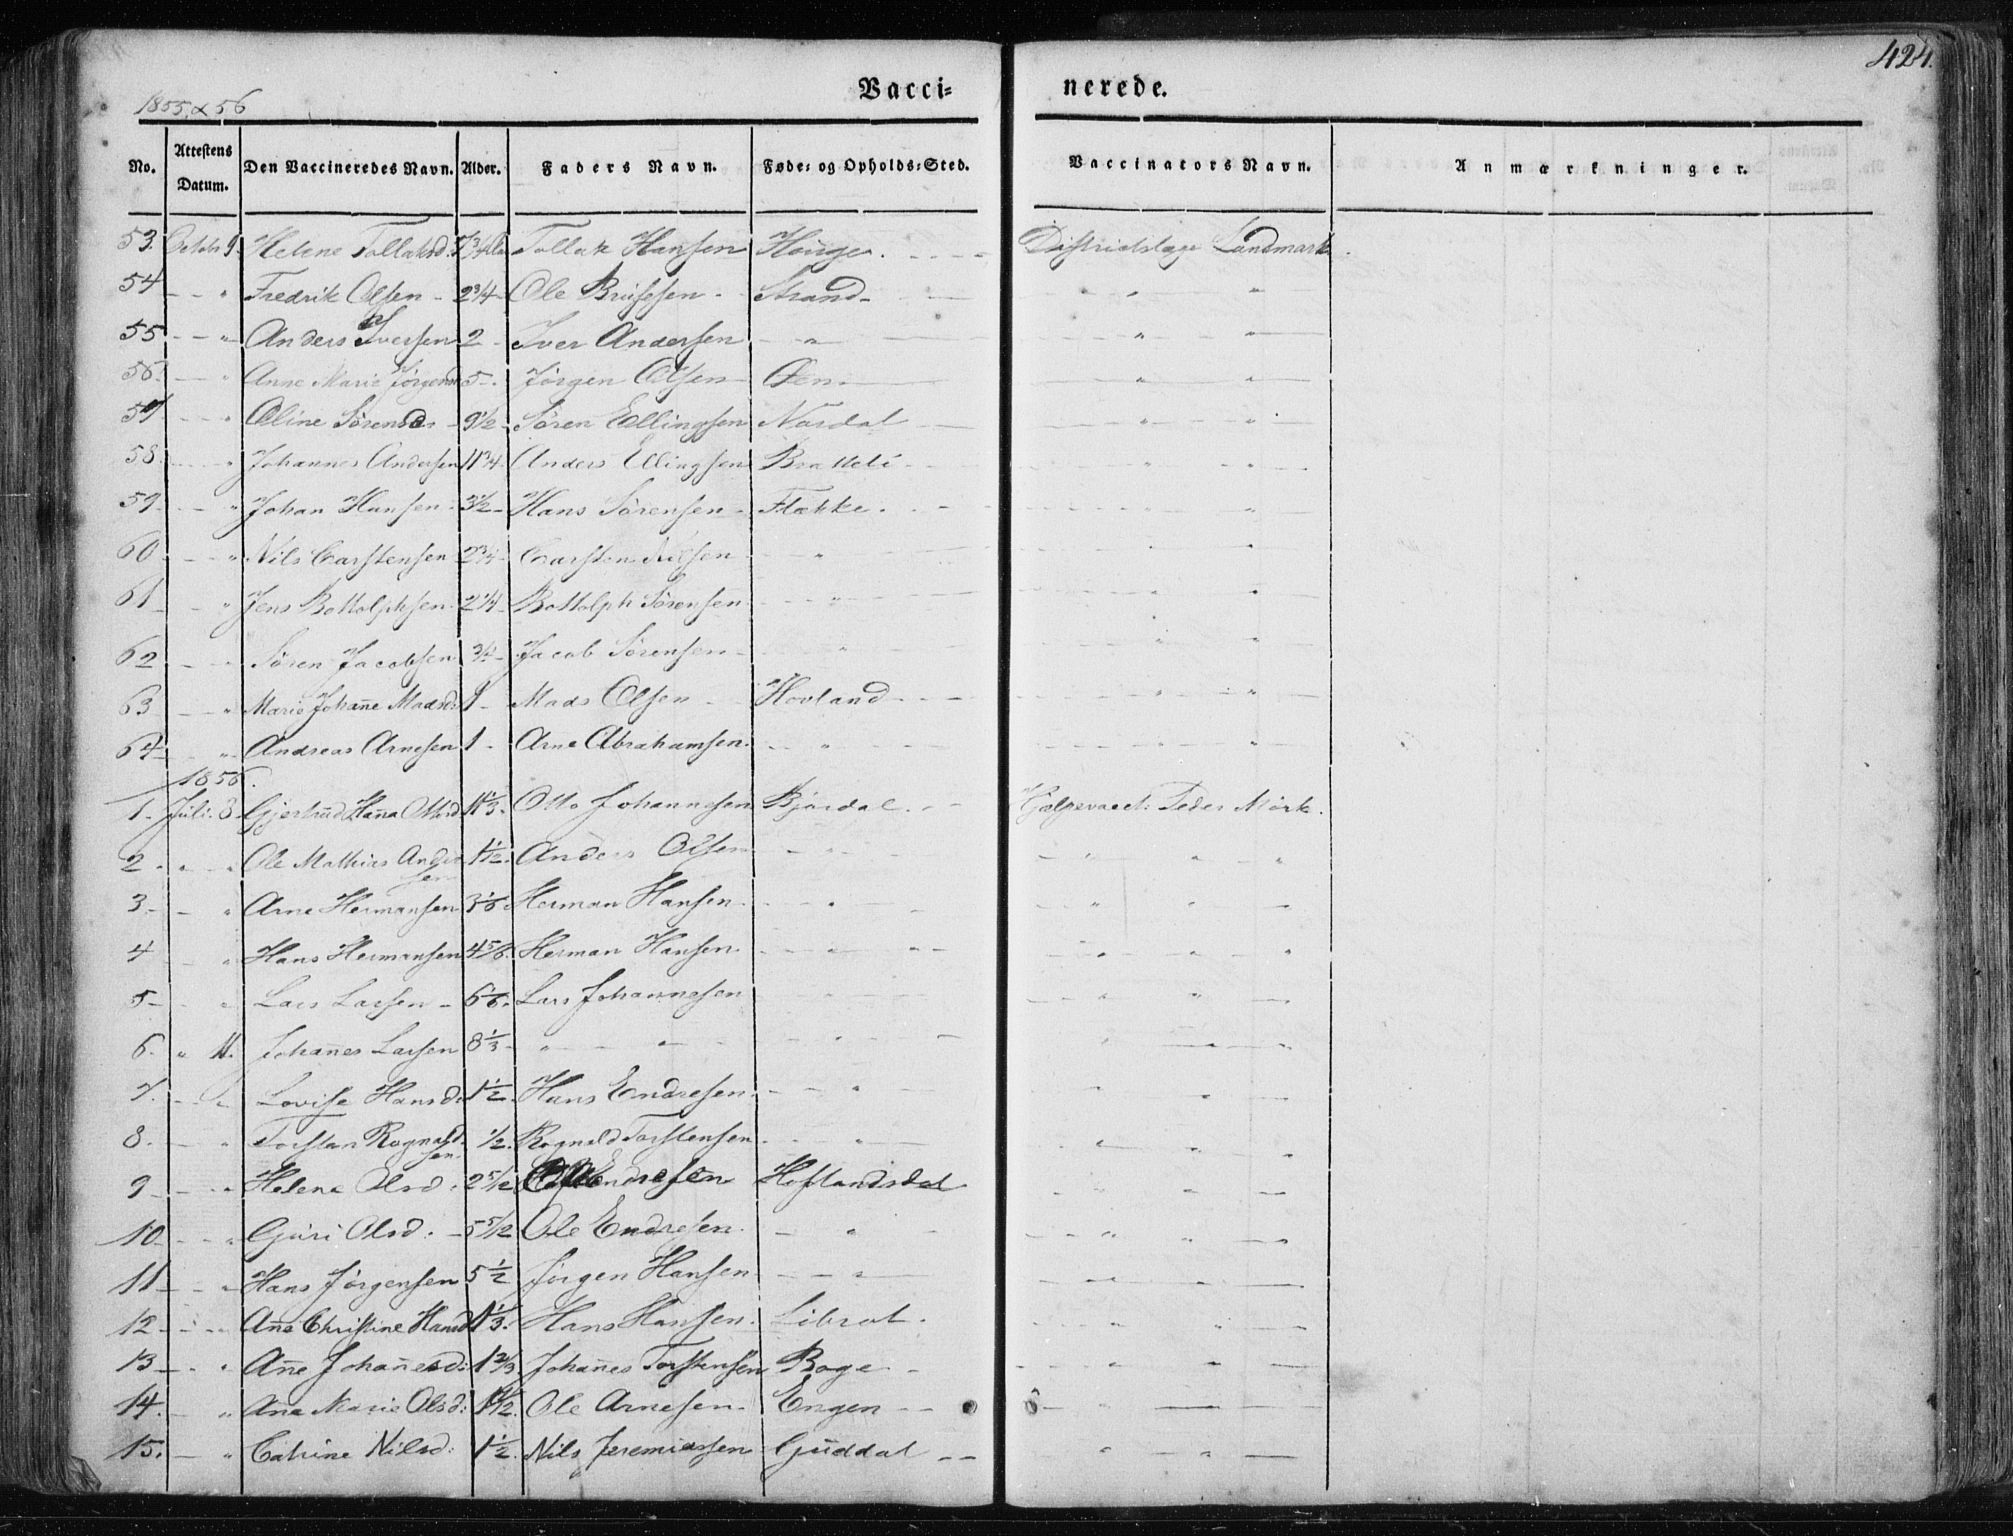 424.
1855 & 56
Vacci- nerede.
No. Attestens Datum. Den Vaccineredes Navn. Alder. Faders Navn. Føde- og Opholds-Sted. Vaccinators Navn. Anmærkninger.
53. Octobr 9 Helene Tollaksd. Tollak Hansen Houge. Districtslæge Landmark
54 - - " Fredrik Olsen - 2 3/4 - Ole - Strand - " "
55 - - " Anders Iversen 2 - Iver Andersen - " - " "
56. - - " Anne Marie Jørgensd 5 - Jørgen Olsen - Øen - " "
57 - - " Oline Sørensd - 9 1/2 - Søren Ellingsen Nordal - " "
58. - - " Johannes Andersen 11 3/4 Anders Ellingsen Bratteli - " "
59. - - " Johan Hansen - 3 1/2 - Hans Sørensen - Flække. - " "
60 - - " Nils Carstensen 2 3/4 - Carsten Nilsen - " " "
61 - - " Jens Bottolphsen 2 1/4 - Bottolph Sørensen - " - " "
62 - - " Søren Jacobsen 3/4 - Jacob Sørensen - " - " "
63 - - " Marie Johan̄e Madsdr 1 - Mads Olsen - Hovland - " "
64 - " Andreas Arnesen 1 - Arne Abrahamsen - " - " "
1856.
1. Juli. 8. Gjertrud Han̄a Ottosd 1 1/3. Otto Johannesen Bjordal. - Hjelpevacct: Peder Mørk.
2. " " Ole Mathias Andersen 1 1/2. Anders Olsen - " " "
3. - " Arne Hermansen 3 1/6. Herman Hansen - " - " " -
4 - " Hans Hermansen 4 5/6. Herman Hansen - " - " " "
5 - " Lars Larsen - 6 1/6. Lars Johannesen - " " -
6. " 11. Johan̄es Larsen 8 1/3 - " - " - " - " "
7. - " Lovise Hansdr 1 1/2. Hans Endresen - " - " "
8. - " Torstan Rognaldsen 1/2. Rognald Torstensen - " - " "
9 - - " Helene Olsd. 2 5/12 Endresen Hoflandsdal - " "
10 - - " Guri Olsd. - 5 5/12 Ole Endresen. - " - " " -
11 - - " Hans Jørgensen 5 1/2 Jørgen Hansen - " - " "
12 - - " An̄e Christine Hansd 1 1/3. Hans Hansen. Librot. - " " "
13 - - " An̄e Johan̄esd: 1 2/3. Johan̄es Torstensen Boge - " "
14. - " An̄e Marie Olsd: 1 1/2. Ole Arnesen - Engen - - " -
15. - " Catrine Nilsd: 1 1/2. Nils Jeremiassen Guddal - - " - " -